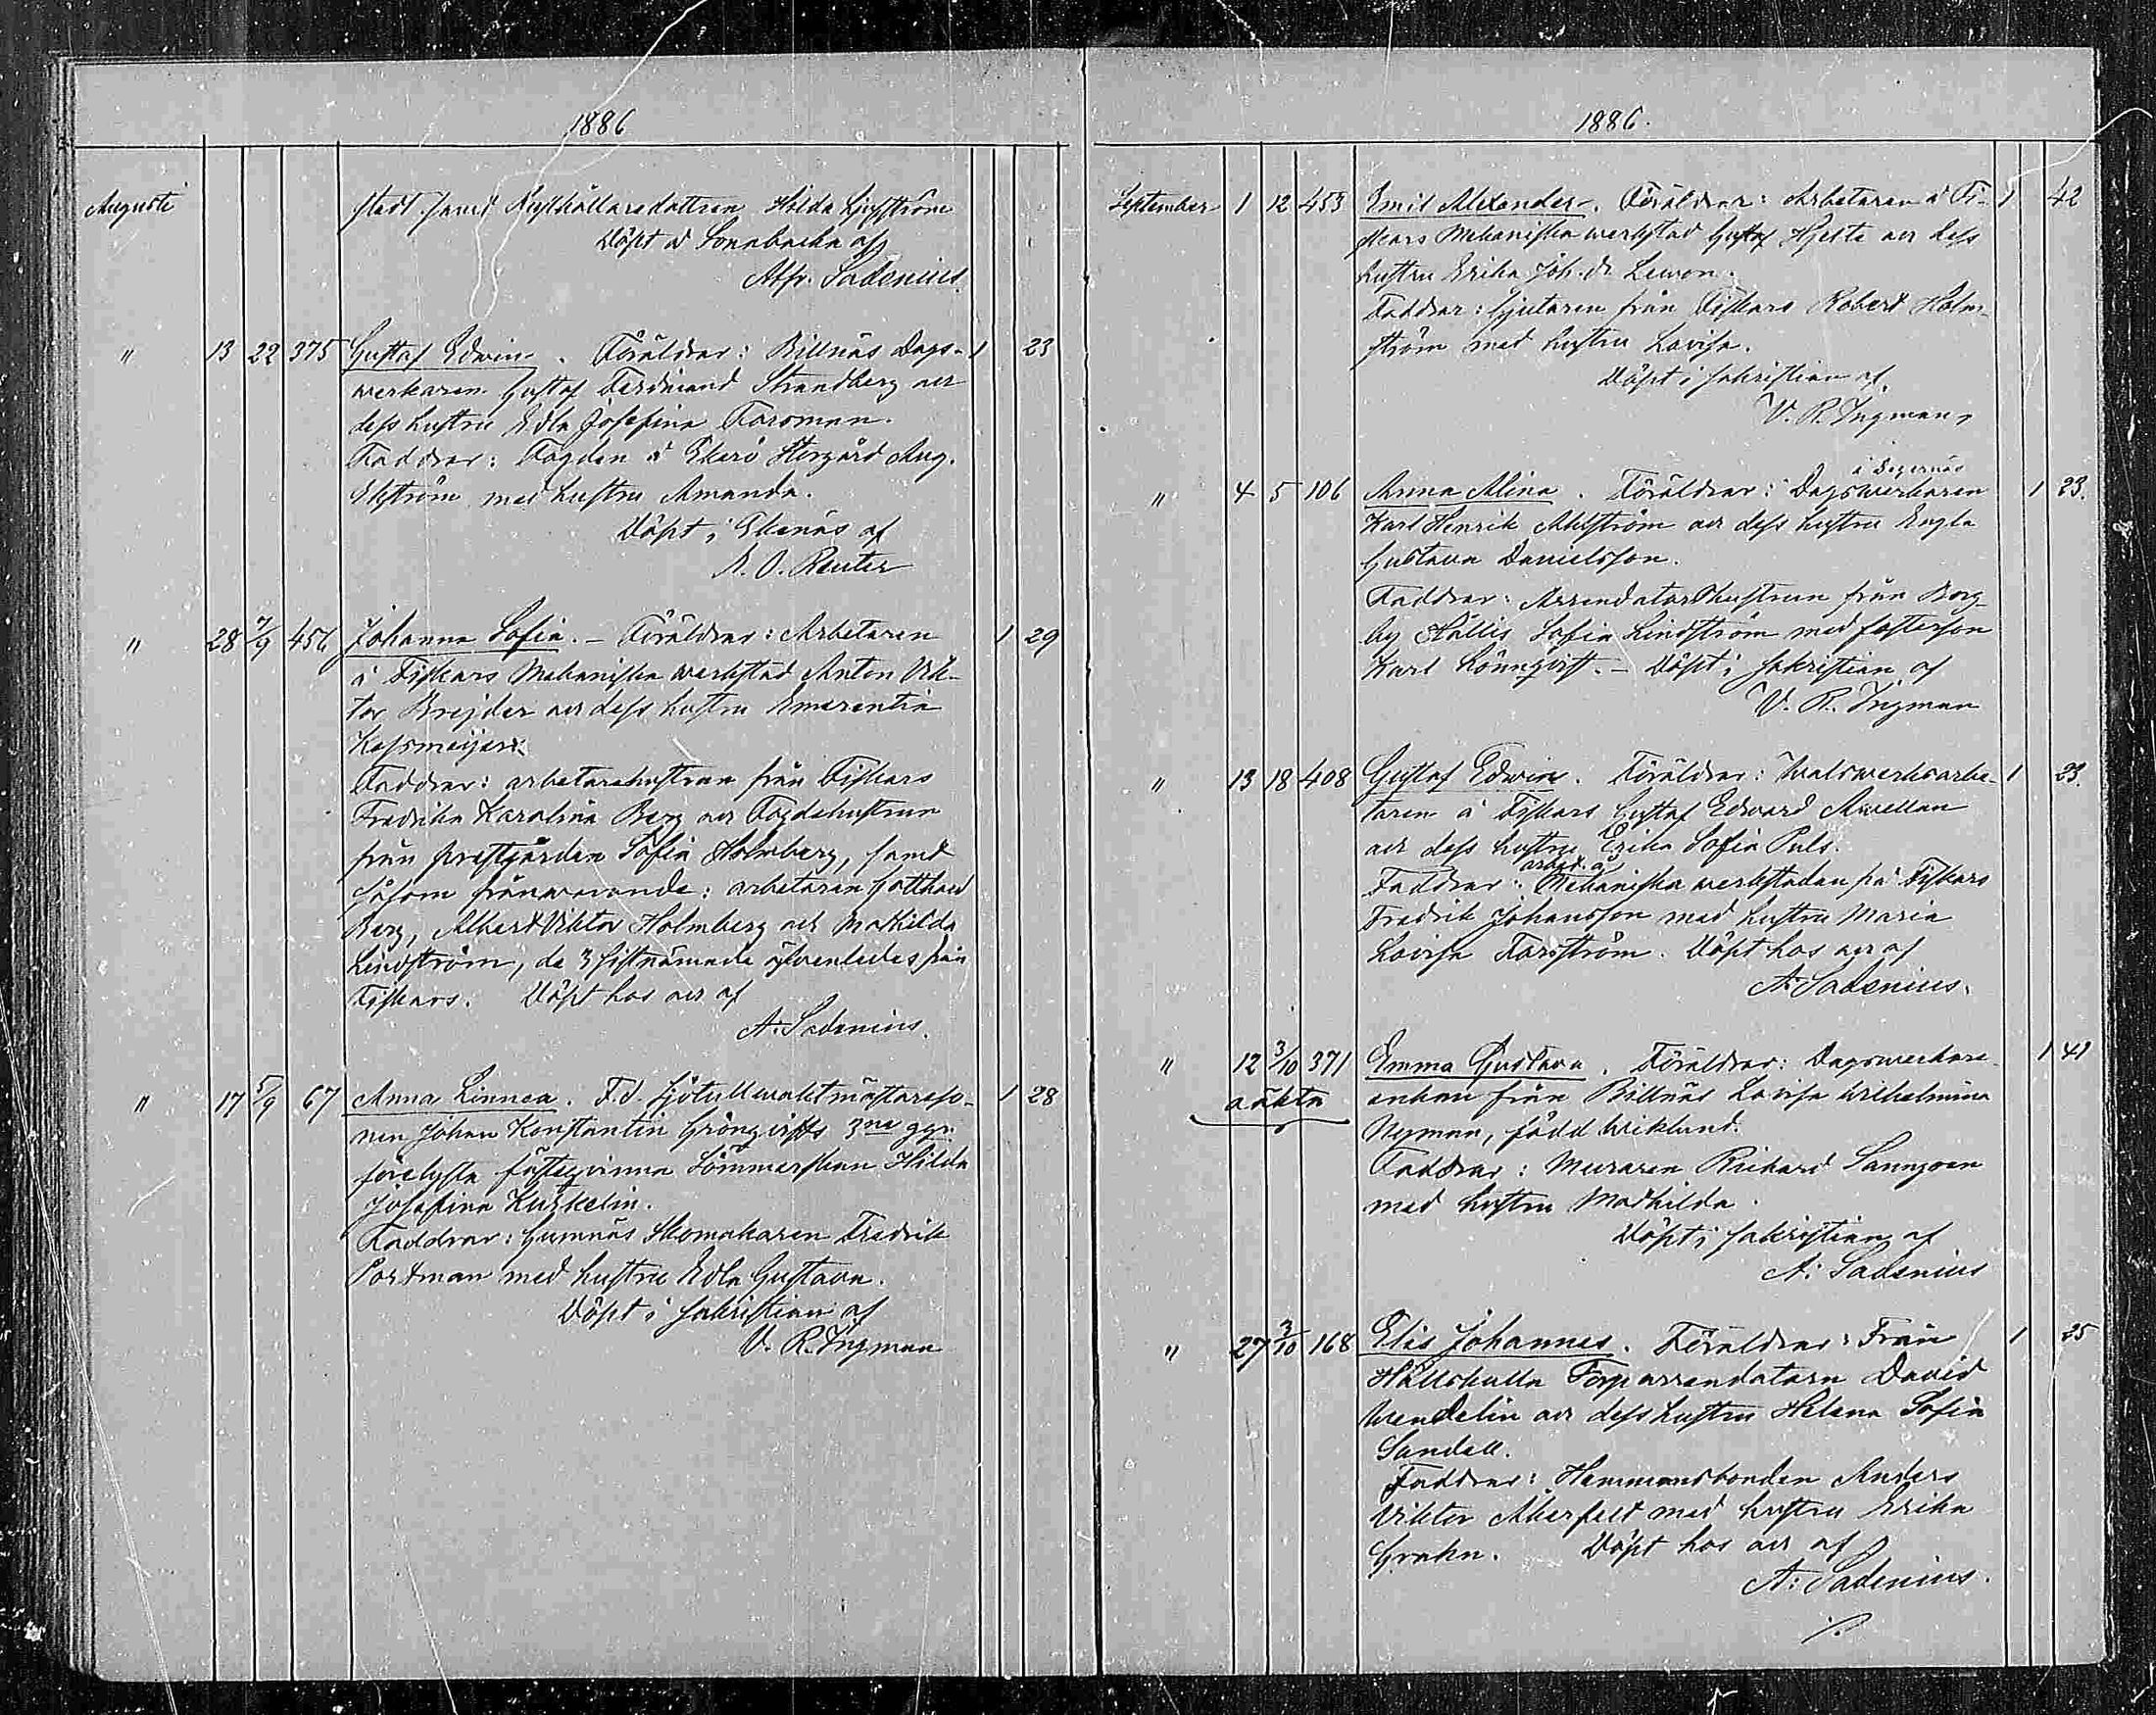 1886
Augusti
stedt samt Rusthållaredottren Hilda Ljungström
Döpt å Sonabacka af
Alfr. Sadenius.
" 13 22 375 Gustaf Edwin. Föräldrar: Billnäs Dags- 1 23
werkaren Gustaf Ferdinand Strandberg och
dess hustru Edla Josefina Forsman.
Faddrar: Fogden å Ekerö Storgård Aug.
Ekström med hustru Amanda.
Döpt i Ekenäs af
A. O. Reuter
" 28 7/9 456 Johanna Sofia. – Föräldrar: Arbetaren 1 29
å Fiskars Mekaniska werkstad Anton Vik-
tor Brejder och dess hustru Emerentia
Faddrar: arbetarehustrun från Fiskars
Fredrika Karolina Berg och Fogdehustrun
från prestgården Sofia Holmberg, samt
såsom frånwarande: arbetaren Gotthard
Berg, Albert Viktor Holmberg och Mathilda
Lindström, de 3 sistnämnde äfvenledes från
Fiskars. Döpt hos och af
A. Sadenius.
" 17 5/9 67 Anna Linnea. F.d. Sjötullwaktmästareso- 1 28
nen Johan Konstantin Grönqvists 3ne ggr
förelysta fästeqvinna Sömmerskan Hilda
Josefina Kurkelin.
Faddrar: Gumnäs Skomakaren Fredrik
Portman med hustru Edla Gustava.
Döpt i sakristian af
V. R. Ingman
1886.
September 1 12 453 Emil Alexander. Föräldrar: Arbetaren å Fi- 1 42
skars Mekaniska werkstad Gustaf Hjelte och dess
hustru Erika Joh. dr Lewon.
Faddrar: Gjutaren från Fiskars Robert Holm-
ström med hustru Lovisa.
Döpt i sakristian af
V. R. Ingman,
å Degernäs
" 4 5 106 Anna Alina. Föräldrar: Dagswerkaren 1 23.
Karl Henrik Ahlström och dess hustru Engla
Gustava Danielsson.
Faddrar: Arrendatorshustrun från Borg-
by Källis Sofia Lindström med fosterson
Karl Lönnqvist. – Döpt i sakristian af
V. R. Ingman
" 13 18 408 Gustaf Edwin. Föräldrar: Walswerksarbe- 1 23.
taren å Fiskars Gustaf Edward Awellan
och dess hustru Erika Sofia Puls.
arbet. å
Faddrar: Mekaniska werkstaden på Fiskars
Fredrik Johansson med hustru Maria
Lovisa Forsström. Döpt hos och af
A. Sadenius.
" 12 3/10 371 Emma Gustava. Föräldrar: Dagswerkare- 1 41
oäkta enkan från Billnäs Lovisa Wilhelmina
Nyman, född Wiklund.
Faddrar: Muraren Rickard Sanngren
med hustru Mathilda.
Döpt i sakristian af
A. Sadenius
" 27 3/10 168 Elis Johannes. Föräldrar: Från 1 25
Hällskulla Torparrendatorn David
Wendelin och dess hustru Helena Sofia
Sandell.
Faddrar: Hemmansbonden Anders
Viktor Åkerfelt med hustru Erika
Grahn. Döpt hos och af
A. Sadenius.